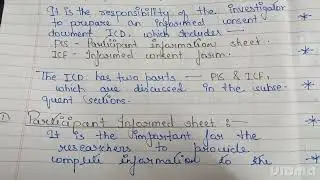 It is the responsibility of the investigator
to prepare an informed consent
document ICD, which includes —
PIS - Participant information sheet.
ICF - Informed consent form.
The ICD has two parts — PIS & ICF,
which are discussed in the subse-
quent sections.
Participant Informed sheet :-
It is the important for the
researchers to provide
complete information to the